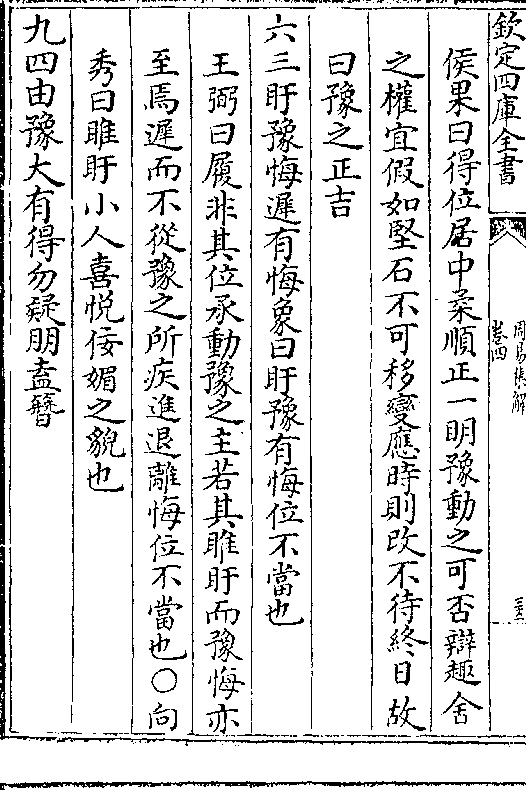 欽定四庫全書
卷四
侯果曰得位居中柔順正一明豫動之可否辯趣舍
之權宜假如堅石不可移變應時則改不待終日故
曰豫之正吉
六三盱豫悔遲有悔象曰盱豫有悔位不當也
王弼曰履非其位承動豫之主若其睢盱而豫悔亦
至焉遲而不從豫之所疾進退離悔位不當也○向
秀曰睢盱小人喜悅佞媚之貌也
九四由豫大有得勿疑朋盍簪